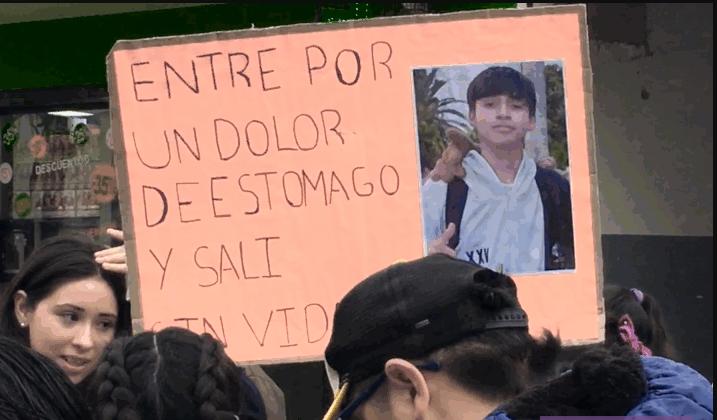 ENTRE POR
UN DOLOR
DE ESTOMAGO
Y SALI
SIN VID
XXV
DESCUENTOS
35